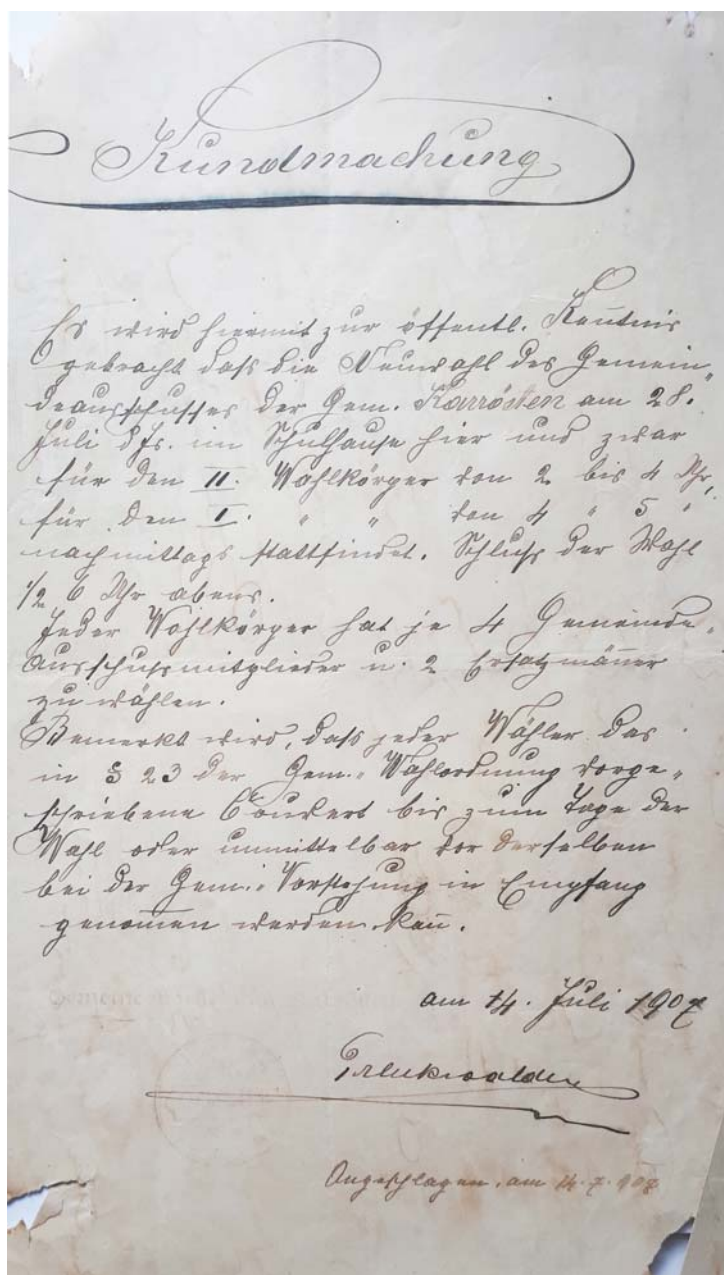 Kundmachung
Es wird hiermit zur öffentl. Kenntnis
gebracht dass die Neuwahl des Gemein„
deausschusses der Gem. Karrösten am 28.
Juli d Js. im Schulhause hier und zwar
für den II. Wahlkörper von 2 bis 4 Uhr,
für den I. " " von 4 " 5 "
nachmittags stattfindet. Schluss der Wahl
1/2 6 Uhr abens.
Jeder Wahlkörper hat je 4 Gemeinde„
Ausschussmitglieder u. 2 Ersatzmänner
zu wählen.
Bemerkt wird, dass jeder Wähler das
in § 23 der Gem.„ Wahlordnung vorge„
schriebene Couvert bis zum Tage der
Wahl oder unmittelbar vor derselben
bei der Gem.„ Vorstehung in Empfang
genommen werden kann.
am 14. Juli 1907
Trenkwalder
Angeschlagen. am 14. 7. 907